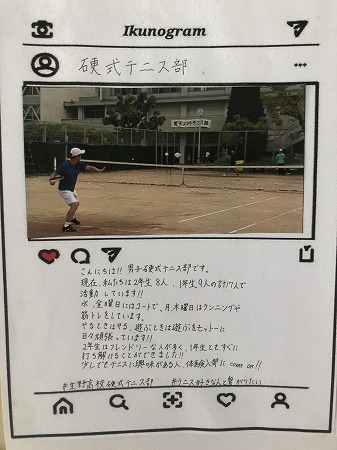 Ikunogram
硬式テニス部
男子ソフトテニス部
こんにちは!! 男子硬式テニス部です。
現在、私たちは2年生8人、1年生9人の計17人で
活動しています!!
水、金曜日にはコートで、月、木曜日はランニングや
筋トレをしています。
やるときはやる、遊ぶときは遊ぶをモットーに
日々頑張っています!!
2年生はフレンドリーな人が多く、1年生ともすぐに
打ち解けることができました!!
少しでもテニスに興味がある人、体験入部に come on!!
#生野高校硬式テニス部 #テニス好きなんと繋がりたい